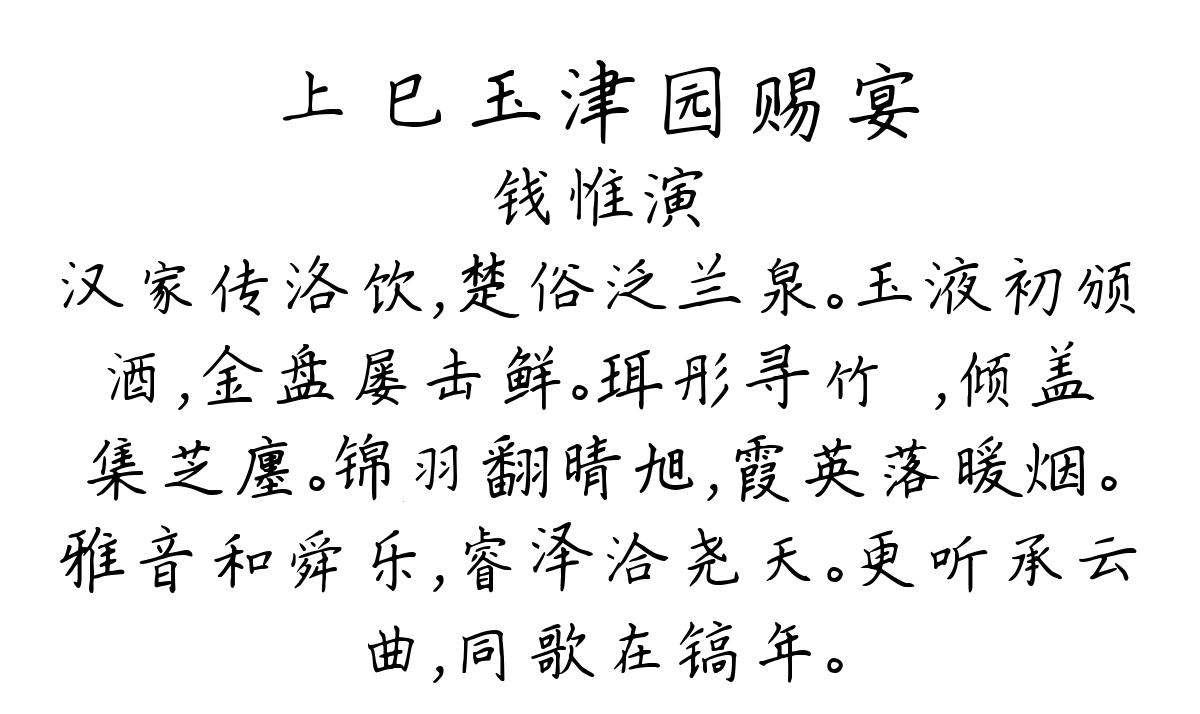 上巳玉津园赐宴
钱惟演
汉家传洛饮,楚俗泛兰泉。玉液初颁
酒,金盘屡击鲜。珥彤寻竹 ,倾盖
集芝廛。锦羽翻晴旭,霞英落暖烟。
雅音和舜乐,睿泽洽尧天。更听承云
曲,同歌在镐年。